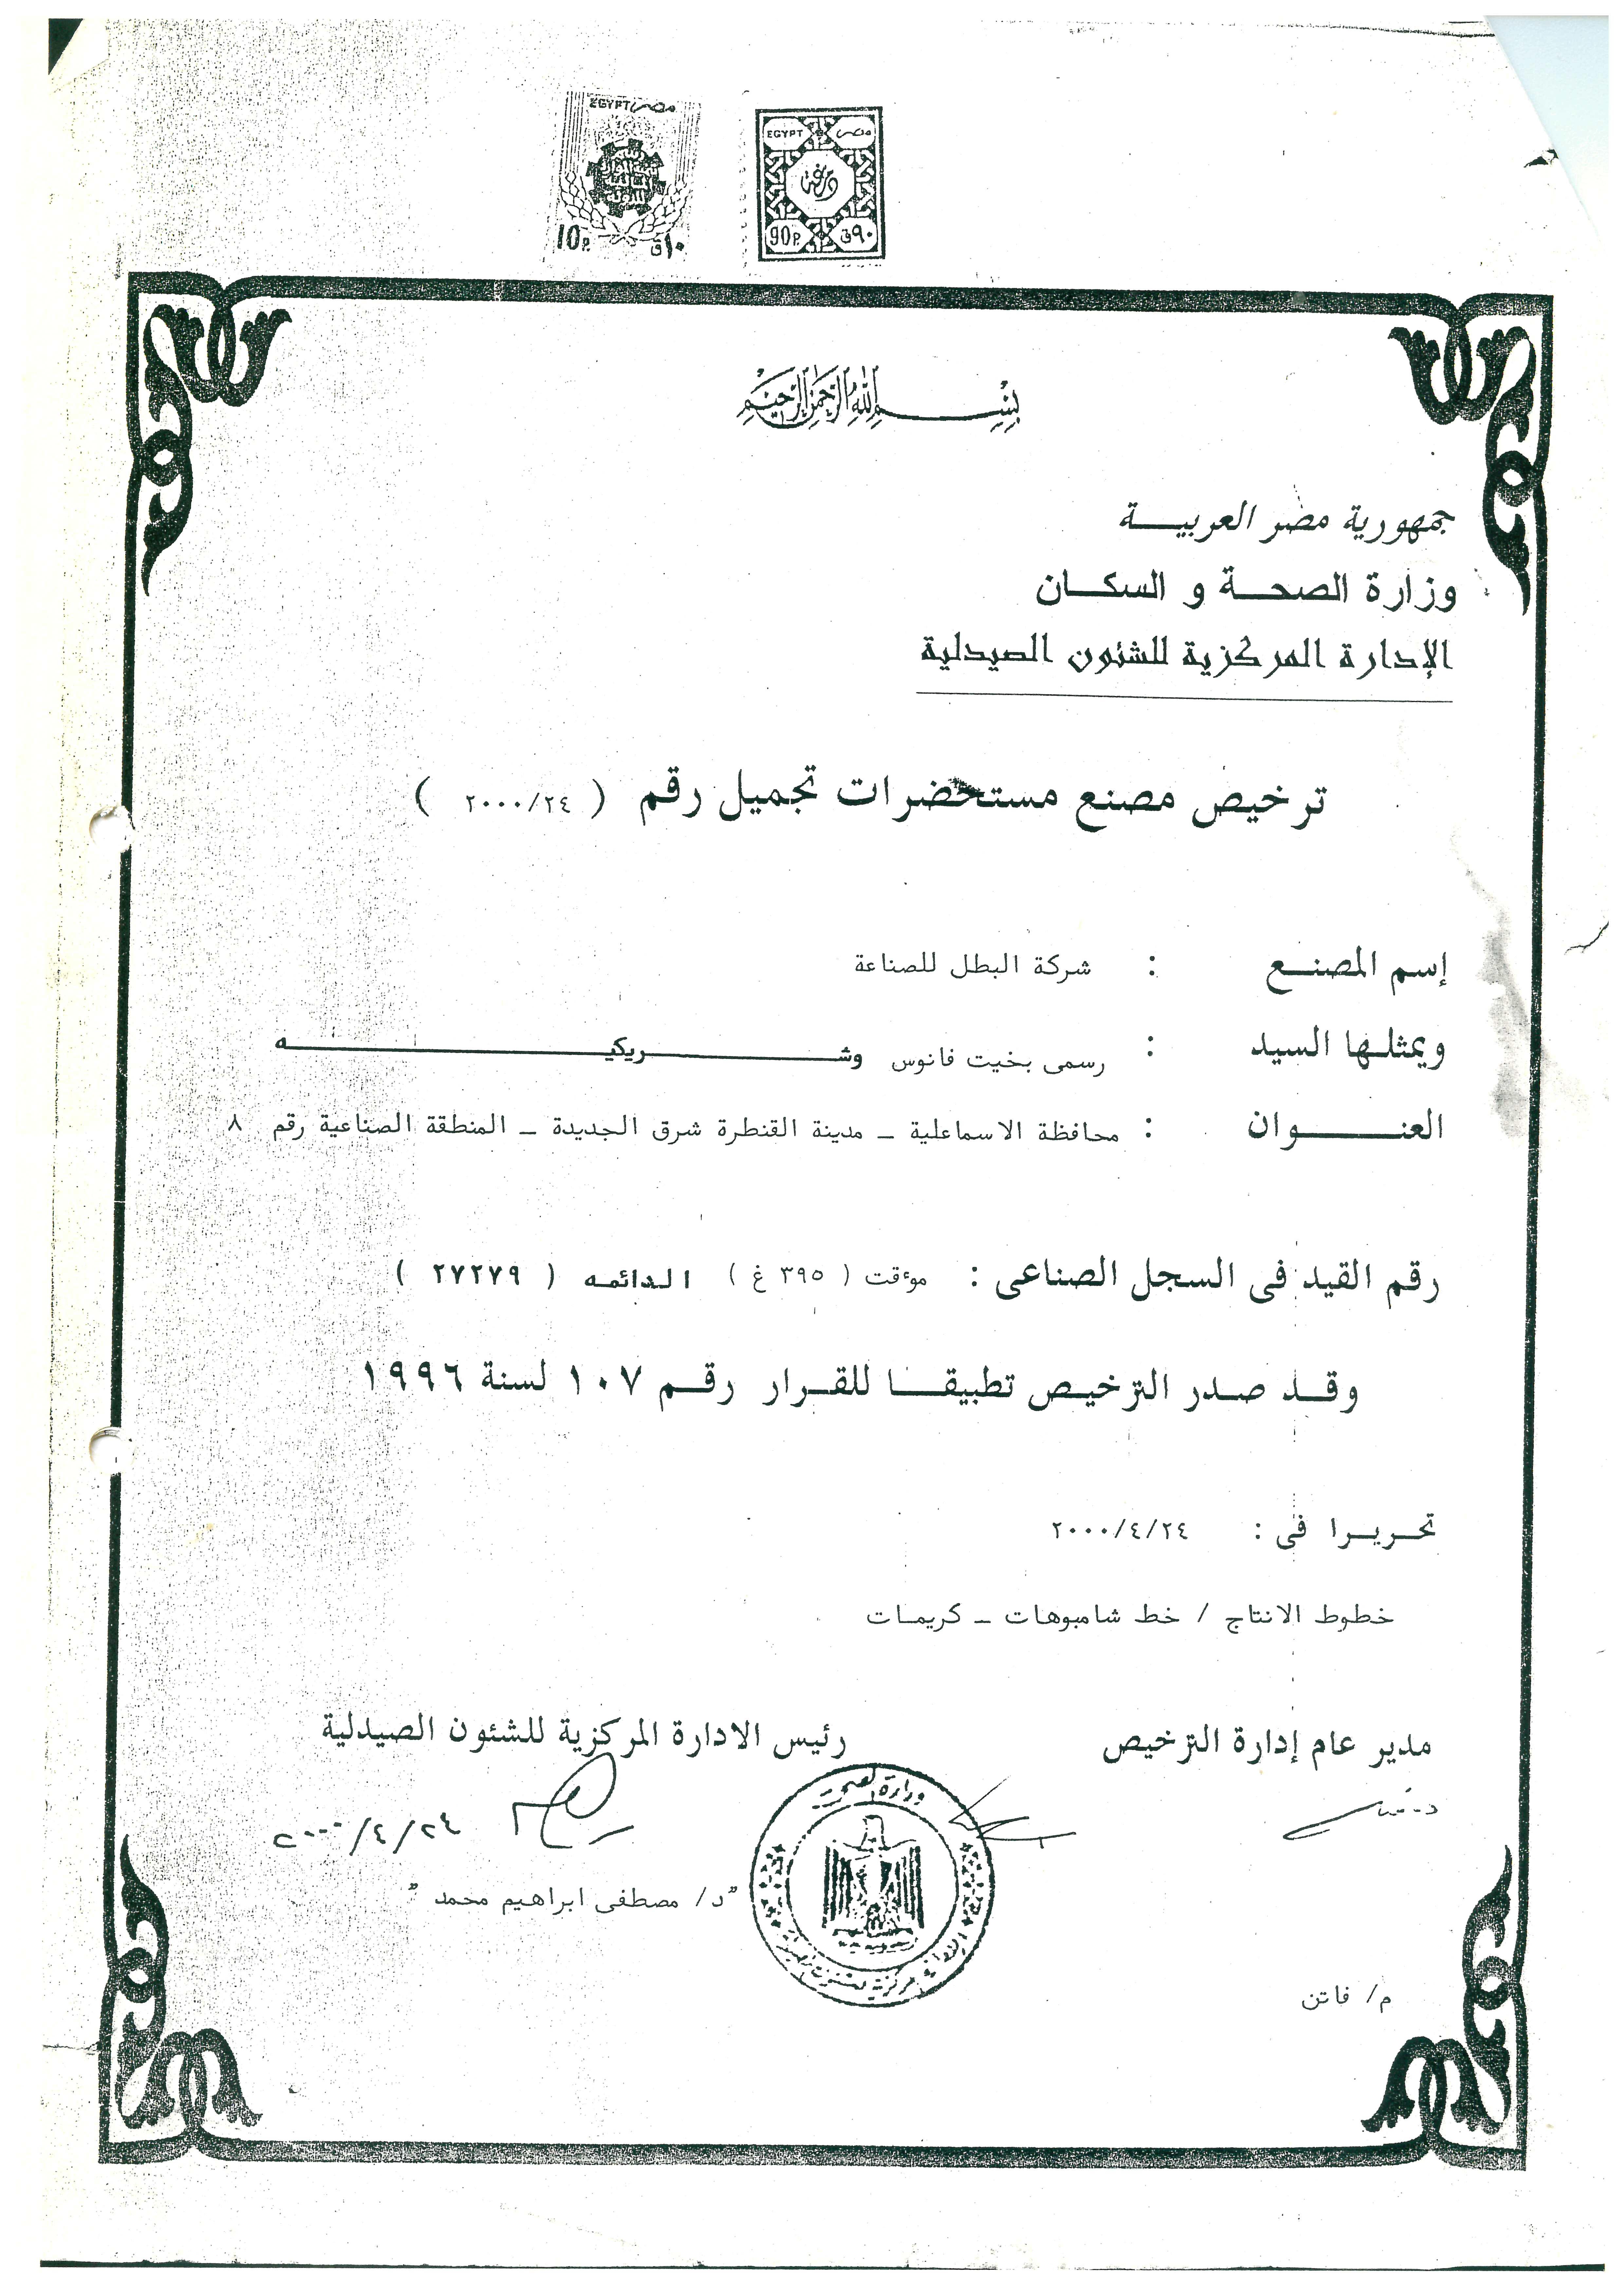 EGYPT مصر
10P ١٠ق
EGYPT مصر
دمغة
90P ٩٠ق
بسم الله الرحمن الرحيم
جمهورية مصر العربيـــة
وزارة الصحـــة و السكــان
الإدارة المركزية للشئون الصيدلية
ترخيص مصنع مستحضرات تجميل رقم ( ٢٠٠٠/٢٤ )
إسم المصنــع : شركة البطل للصناعة
ويمثلـها السيد : رسمى بخيت فانوس وشـــــريكيـــــــه
العنـــــوان : محافظة الاسماعلية – مدينة القنطرة شرق الجديدة – المنطقة الصناعية رقم ٨
رقم القيد فى السجل الصناعى : موءقت ( ٣٩٥ غ ) الدائمه ( ٢٧٢٧٩ )
وقـد صـدر الترخيـص تطبيقــا للقـرار رقـم ١٠٧ لسنة ١٩٩٦
تحـريـرا فى : ٢٠٠٠/٤/٢٤
خطوط الانتاج / خط شامبوهات – كريمات
مدير عام إدارة الترخيص
رئيس الادارة المركزية للشئون الصيدلية
٢٠٠٠/٤/٢٤
وزارة الصحة
الإدارة المركزية للشئون الصيدلية
"د/ مصطفى ابراهيم محمد"
م/ فاتن